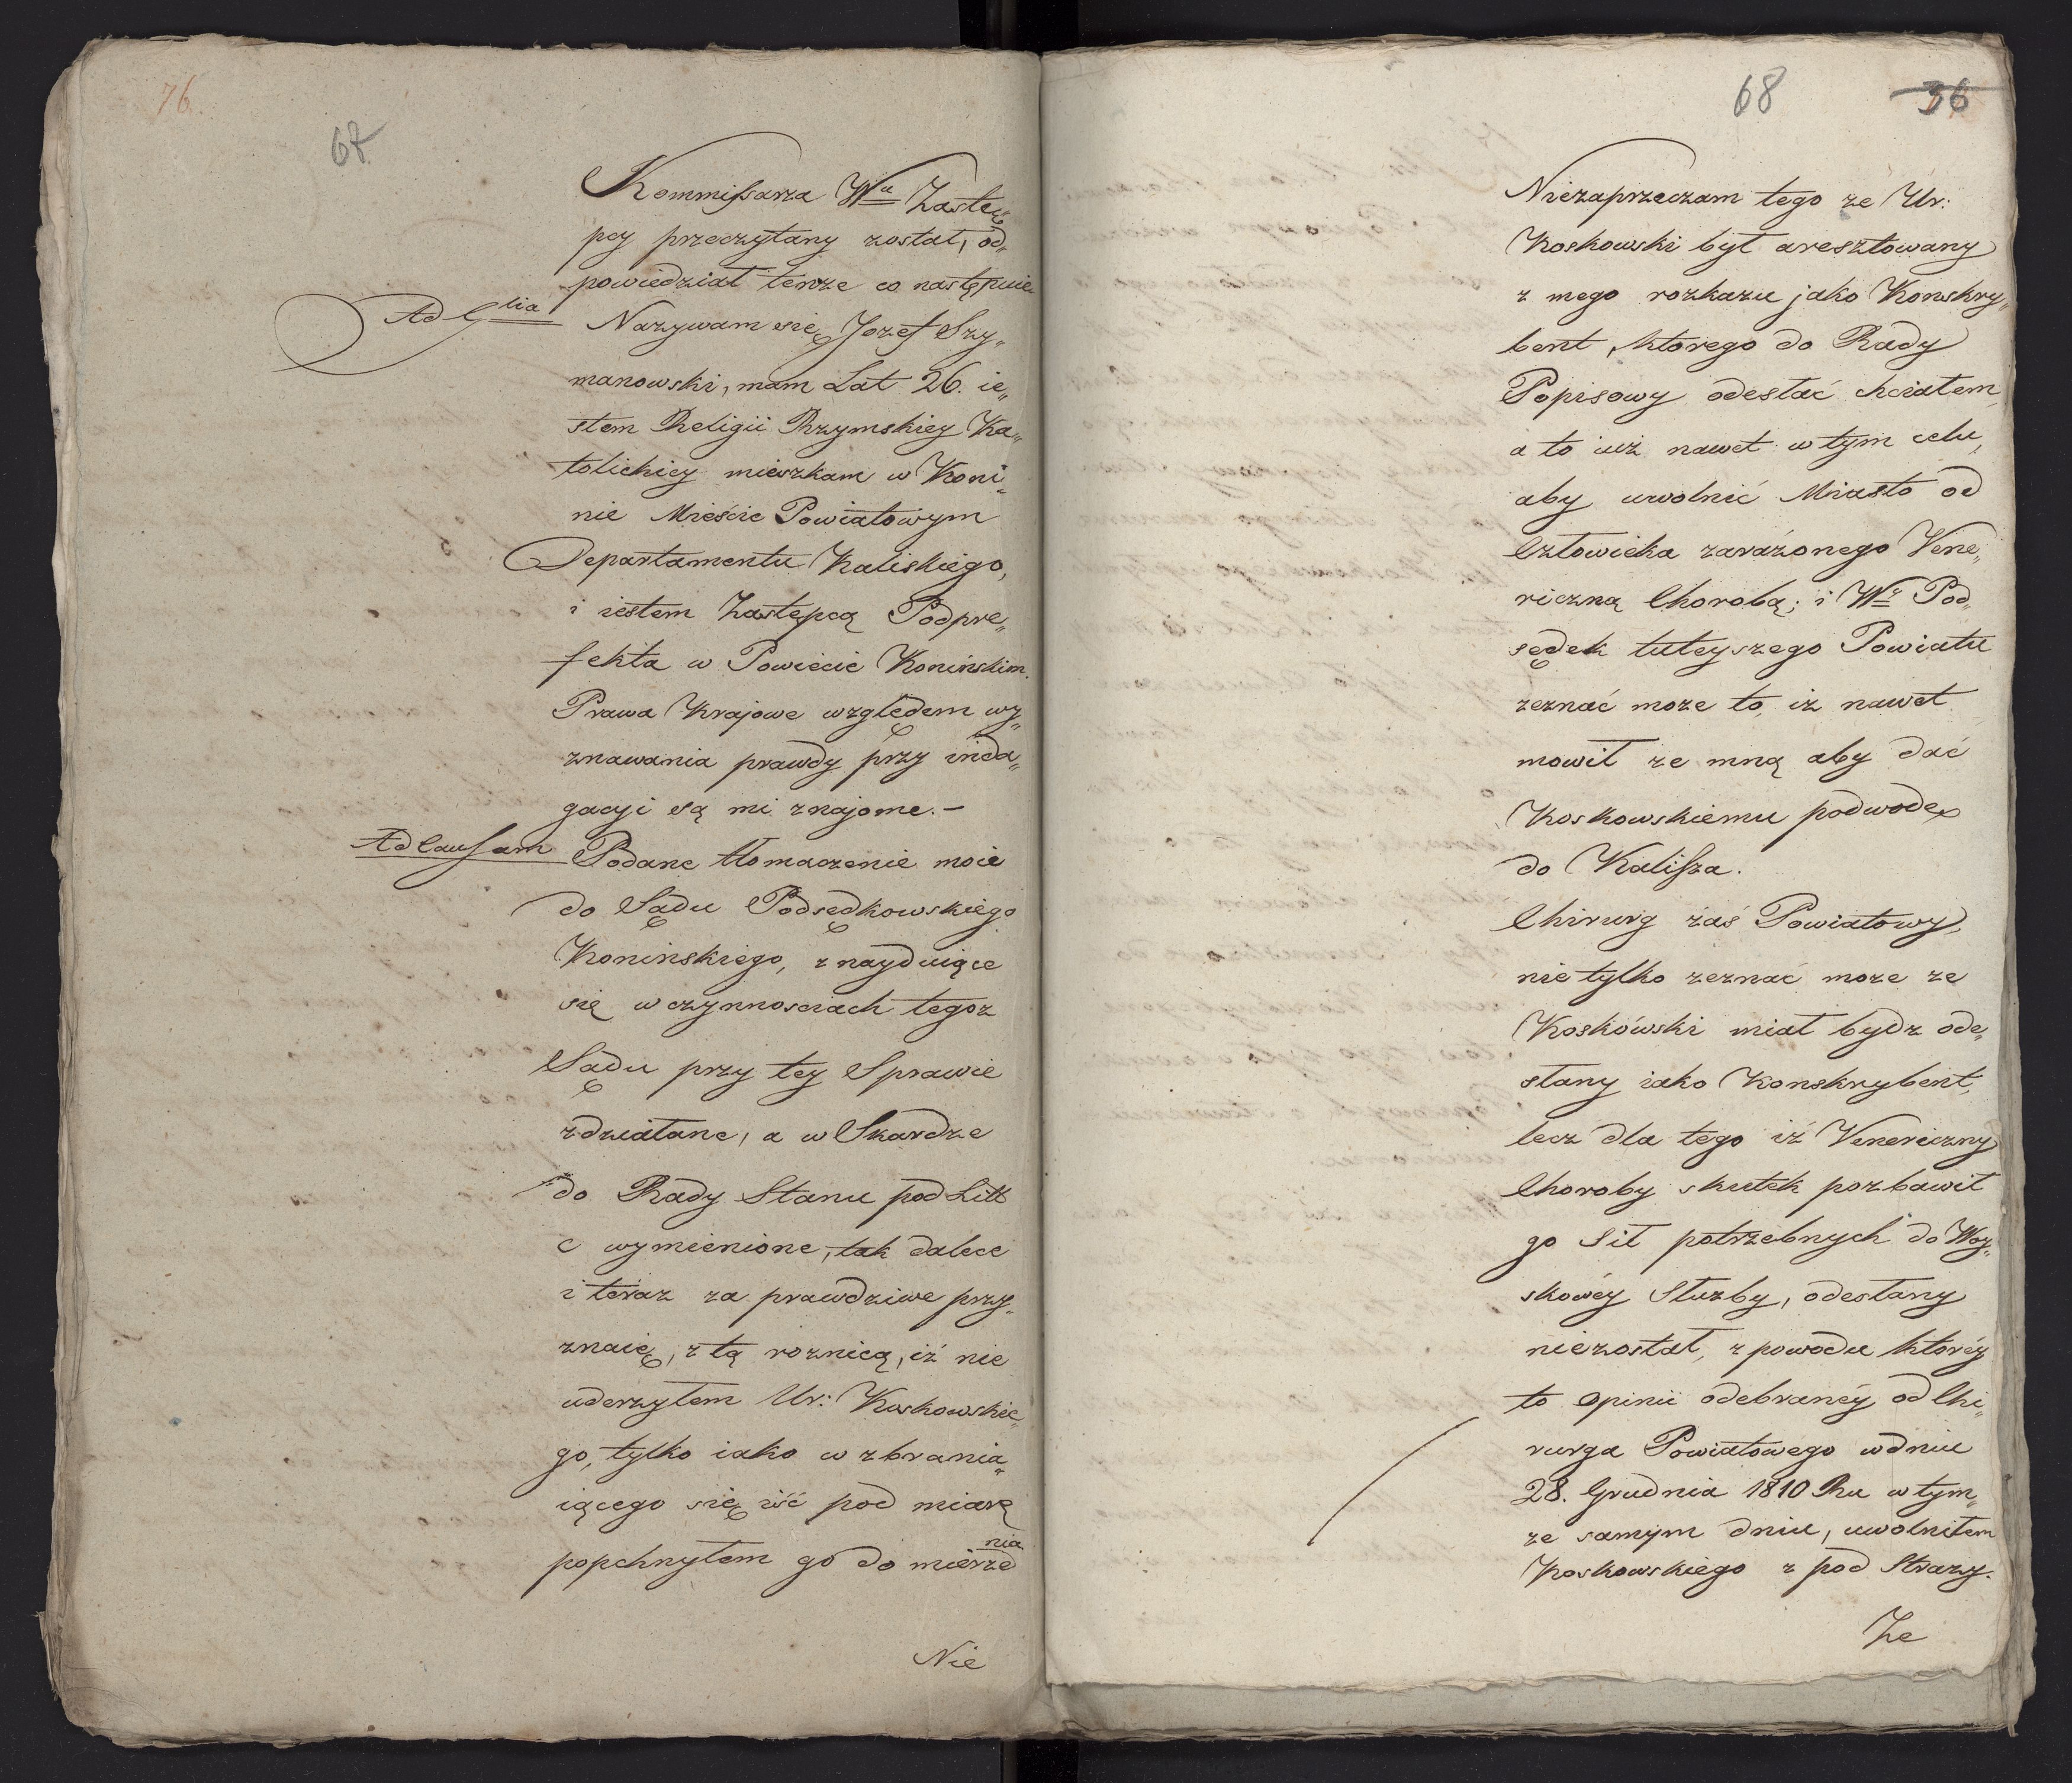 76.
67
Kommissarza Wu Zastę„
pcy przeczytany został, od„
powiedział tenże co następuie
Ad Glia Nazywam się Jozef Szy„
manowski, mam Lat 26. ie„
stem Religii Rzymskiey Ka„
tolickiey mieszkam w Koni„
nie Mieście Powiatowym
Departamentu Kaliskiego,
i iestem Zastępcą Podpre„
fekta w Powiecie Konińskim.
Prawa Krajowe względem wy„
znawania prawdy przy inda„
gacyi są mi znajome. –
Ad Causam Podane tłomaczenie moie
do Sądu Podsędkowskiego
Koninskiego, znayduiące
się w czynnosciach tegoż
Sądu przy tey Sprawie
zdziałane, a w Skardze
do Rady Stanu pod Litt
C wymienione, tak dalece
i teraz za prawdziwe przy„
znaię, z tą roznicą, iż nie
uderzyłem Ur: Koskowskie„
go, tylko iako wzbrania„
iącego się iść pod miarę
popchnąłem go do mierze
nia
Nie
68
36
Niezaprzeczam tego ze Ur:
Koskowski był aresztowany
z mego rozkazu jako Konskry„
bent, ktorego do Rady
Popisowy odesłać chciałem,
a to iuż nawet w tym celu,
aby uwolnić Miasto od
Człowieka zarażonego Vene„
riczną Chorobą; i Wr Pod„
sędek tuteyszego Powiatu
zeznać może to, iż nawet
mowił ze mną aby dać
Koskowskiemu podwodę
do Kalisza.
Chirurg zaś Powiatowy,
nie tylko zeznać moze ze
Koskowski miał bydz ode„
słany iako Konskrybent,
lecz dla tego iż Venericzny
Choroby skutek pozbawił
go Sił potrzebnych do Woy„
skowéy Służby, odesłany
niezostał, z powodu któréy
to opinii odebranéy od Chi„
rurga Powiatowego w dniu
28. Grudnia 1810 Ru w tym„
ze samym dniu, uwolniłem
Koskowskiego z pod Strazy.
Ze